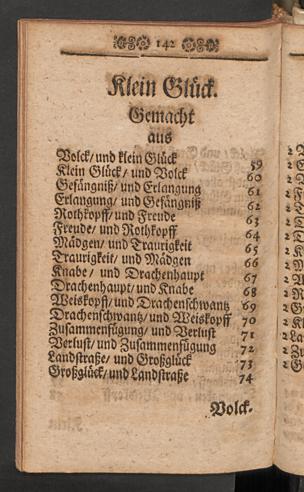 142
Klein Glück.
Gemacht
aus
Volck/ und klein Glück 59
Klein Glück/ und Volck 60
Gefängniß/ und Erlangung 61
Erlangung/ und Gefängniß 62
Rothkopff/ und Freude 63
Freude/ und Rothkopff 64
Mädgen/ und Traurigkeit 65
Traurigkeit/ und Mädgen 66
Knabe/ und Drachenhaupt 67
Drachenhaupt/ und Knabe 68
Weiskopff/ und Drachenschwantz 69
Drachenschwantz/ und Weiskopff 70
Zusammenfügung/ und Verlust 71
Verlust/ und Zusammenfügung 72
Landstraße/ und Großglück 73
Großglück/ und Landstraße 74
Volck.